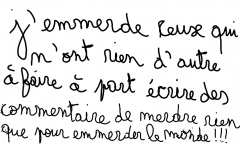 j'emmerde ceux qui
n'ont rien d'autre
à faire à part écrire des
commentaire de merdre rien
que pour emmerder le monde !!!